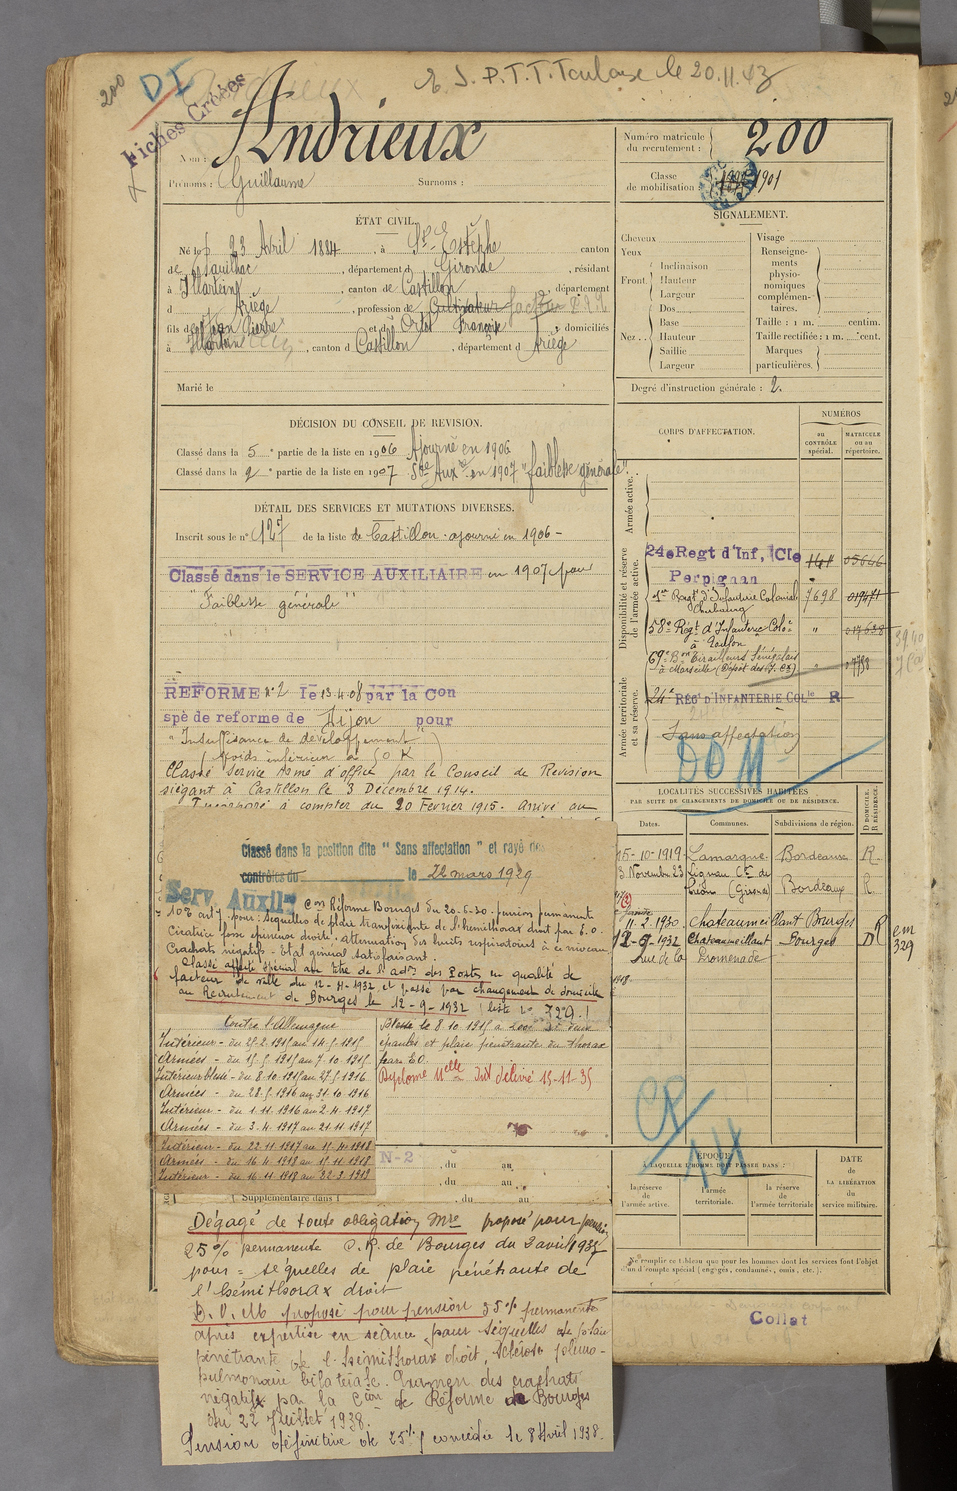 200
DI
Fiches Créées
E. S. P.T.T. Toulouse le 20.11.43
Nom : Andrieux
Prénoms : Guillaume Surnoms :
Numéro matricule du recrutement : 200
Classe de mobilisation : 1901
ÉTAT CIVIL.
Né le 23 Avril 1884, à St-Estèphe canton
de Pauillac, département d Gironde, résidant
à Illartein, canton de Castillon, département
d Ariège, profession de Cultivateur facteur
fils de Jean Pierre et d Ortet Françoise, domiciliés
à Illartein, canton d Castillon, département d Ariège
Marié le
SIGNALEMENT.
Cheveux
Yeux
Front
Inclinaison
Hauteur
Largeur
Nez
Dos
Base
Hauteur
Saillie
Largeur
Visage
Renseignements physionomiques complémentaires.
Taille : 1 m. centim.
Taille rectifiée : 1 m. cent.
Marques particulières.
Degré d'instruction générale : 2.
DÉCISION DU CONSEIL DE REVISION.
Classé dans la 5e partie de la liste en 1906 Ajourné en 1906
Classé dans la 2e partie de la liste en 1907 Sce Auxre en 1907 "faiblesse générale".
DÉTAIL DES SERVICES ET MUTATIONS DIVERSES.
Inscrit sous le n° 127 de la liste de Castillon. ajourné en 1906 -
Classé dans le SERVICE AUXILIAIRE en 1907 pour
"Faiblesse générale"
REFORME N° 2 le 13-4-08 par la Con
spé de reforme de Dijon pour
"Insuffisance de développement"
(poids inférieur à 50 K)
Classé Service Armé d'office par le Conseil de Revision
siégant à Castillon le 3 Décembre 1914.
Incorporé à compter du 20 Février 1915. Arrivé au
CORPS D'AFFECTATION.
NUMÉROS
au CONTRÔLE spécial.
MATRICULE ou au répertoire.
Armée active.
Disponibilité et réserve de l'armée active.
Armée territoriale et sa réserve.
24e Regt d'Inf, Cie 05646
Perpignan
1er Regt d'Infanterie Coloniale 7698 019471
Cherbourg
58e Régt d'Infanterie Colole " 017638
à Toulon
67e Bon Tirailleurs Sénégalais
à Marseille
24e REGt D'INFANTERIE COLle R
Sans affectation
DOM
LOCALITÉS SUCCESSIVES HABITÉES
PAR SUITE DE CHANGEMENTS DE DOMICILE OU DE RÉSIDENCE.
Dates. Communes. Subdivisions de région. D DOMICILE. R RÉSIDENCE.
15-10-1919 Lamarque Bordeaux R.
3 Novembre 23
(Gironde) Bordeaux R
11-2-1930 Chateaumeillant Bourges R
12-9-1932 Chateaumeillant Bourges D
Rue de la Promenade
em 329
Classé dans la position dite "Sans affectation" et rayé des
contrôles du le 22 mars 1929
Serv Auxil
Con Réforme Bourges du 20-6-30. pension permanente
10% pour : séquelles de plaie transfixiante de l'hémithorax droit par E.O.
Cicatrice fosse épineuse droite. atténuation des bruits respiratoires à ce niveau
Crachats négatifs - Etat général satisfaisant.
Classé affecté spécial au titre de l'adon des Postes en qualité de
facteur de ville du 12-9-1932 et passé par changement de domicile
au Recrutement de Bourges le 12-9-1932 liste n° 729.
Contre l'Allemagne
Armées - du 15-5-1915 au 7-10-1915
Intérieur blessé - du 8-10-1915 au 27-5-1916
Armées - du 28-5-1916 au 31-10-1916
Intérieur - du 1-11-1916 au 2-4-1917
Armées - du 3-4-1917 au 21-11-1917
Intérieur - du 22-11-1917 au 15-4-1918
Armées - du 16-4-1918 au 15-11-1918
Intérieur - du 16-11-1918 au 22-3-1919
Blessé le 8-10-1915
épaules et plaie pénétrante du thorax
par E.O.
Diplome délivré 15-11-35
N-2
, du au
, du au
Supplémentaire dans l , du au
CP
14
ÉPOQUE
À LAQUELLE L'HOMME DOIT PASSER DANS :
la réserve de l'armée active.
l'armée territoriale.
la réserve de l'armée territoriale
DATE de LA LIBÉRATION du service militaire.
Ne remplir ce tableau que pour les hommes dont les services font l'objet
d'un décompte spécial (engagés, condamnés, omis, etc.).
Collat
Dégagé de toute obligation Mre proposé pour pension
25% permanente C.R. de Bourges du 3 avril 1935
pour = séquelles de plaie pénétrante de
l'hémithorax droit
D.O.M proposé pour pension 35% permanente
après expertise en séance pour séquelles de plaie
pénétrante de l'hémithorax droit, sclérose pulmo-
pulmonaire bilatérale. Examen des crachats
négatifs par la Con de Réforme de Bourges
du 22 Juillet 1938.
Pension définitive de 25% concédée le 8 Avril 1938.